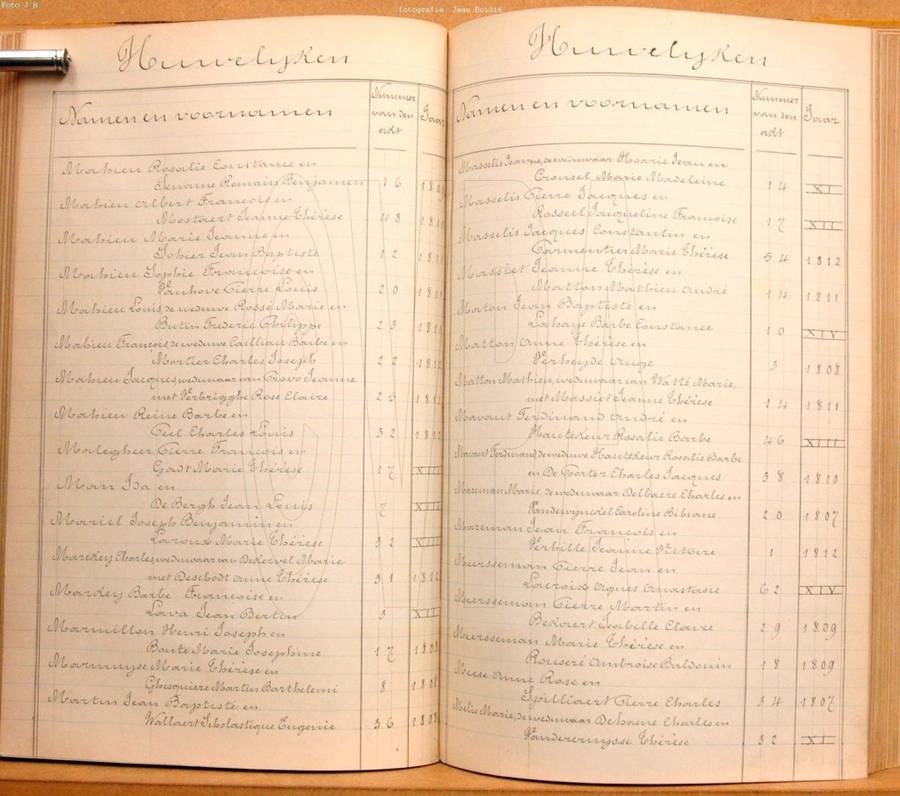 Foto J B
fotografie: Jean Boidin
Huwelijken
Namen en voornamen
Nummer van den adt
Jaar
Mahieu Rosalie Constance en
Romain Benjamin 16
Mahieu Albert Francois en
Mostaert Jeanne Thérèse 43
Mahieu Marie Jeanne en
Johier Jean Baptiste 12
Mahieu Sophie Francoise en
Vanhove Pierre Louis 20
Mahieu Louis, de weduwe Rosse Marie en
Butin Frederic Philippe 23
Mahieu Francois, de weduwe Cailliau Barbe en
Mortier Charles Joseph 22 1812
Mahieu Jacques, weduwaar van Jeanne
met Verbrigghe Rose Claire 25 1812
Mahieu Reine Barbe en
Ciel Charles Louis 32 1812
Malegheer Pierre Francois en
Gadt Marie Thérèse 17 XIII
Man Ida en
De Bergh Jean Louis 7 XIII
Mariel Joseph Benjamin en
Marie Thérèse 32 XIII
Marekey Charles, weduwaar van Dekervel Marie
met Deschodt Anne Thérèse 31 1812
Markey Barbe Francoise en
Lava Jean Bertin 3
Marmillon Henri Joseph en
Bonte Marie Josephine 17 1808
Marmuyse Marie Thérèse en
Ghesquiere Martin Barthelemi 8 1808
Martin Jean Baptiste en
Wallaert Scholastique Eugenie 36 1808
Huwelijken
Namen en voornamen
Nummer van den adt
Jaar
Masselis Jeanne, de weduwaar Jean en
Crousel, Marie Madeleine 14 XI
Masselis Pierre Jacques en
Rosseil Jacqueline Francoise 17 XII
Masselis Jacques Constantin en
Carmentier Marie Thérèse 54 1812
Massiet Jeanne Thérèse en
Matton Mathieu André 14 1811
Maton Jean Baptiste en
Lahaye Barbe Constance 10 XIV
Matton Anne Thérèse en
Verheyde Ange 3 1808
Matton Mathieu, weduwaar van Watté Marie
met Massiet Jeanne Thérèse 14 1811
Mavaut Ferdinand André en
Hautekeur Rosalie Barbe 46 XIII
Mavaut Ferdinand, de weduwe Hautekeur Rosalie Barbe
en De Corter Charles Jacques 38 1810
Mazeman Marie, de weduwaar Delbaere Charles en
Vandewynckel Caroline Bibiane 20 1807
Mazeman Jean Francois en
Verhille Jeanne 1 1812
Meersseman Pierre Jean en
Lacroix Agnes Anastasie 62 XIV
Meersseman Pierre Martin en
Bekaert Isabelle Claire 29 1809
Meersseman Marie Thérèse en
Rouseré Ambroise Baldouin 18 1809
Meese Anne Rose en
Spilliaert Pierre Charles 34 1807
Melis Marie, de weduwaar Dehaene Charles en
Thérèse 32 XI